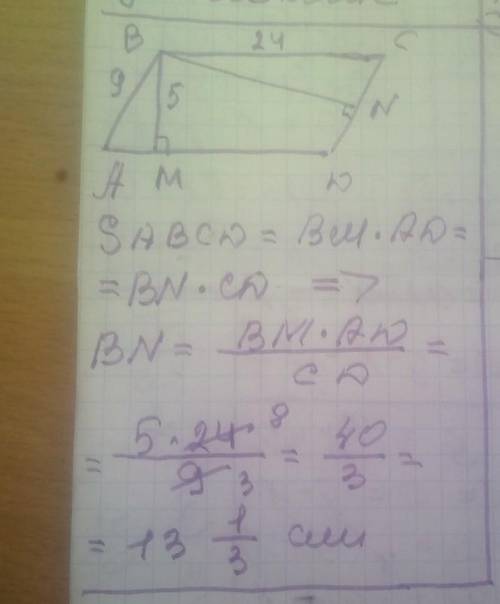 B 24 C
9 5 N
A M D
SABCD = BM · AD =
= BN · CD =>
BN = BM · AD / CD =
= 5 · 24 8 / 9 3 = 40 / 3 =
= 13 1/3 см